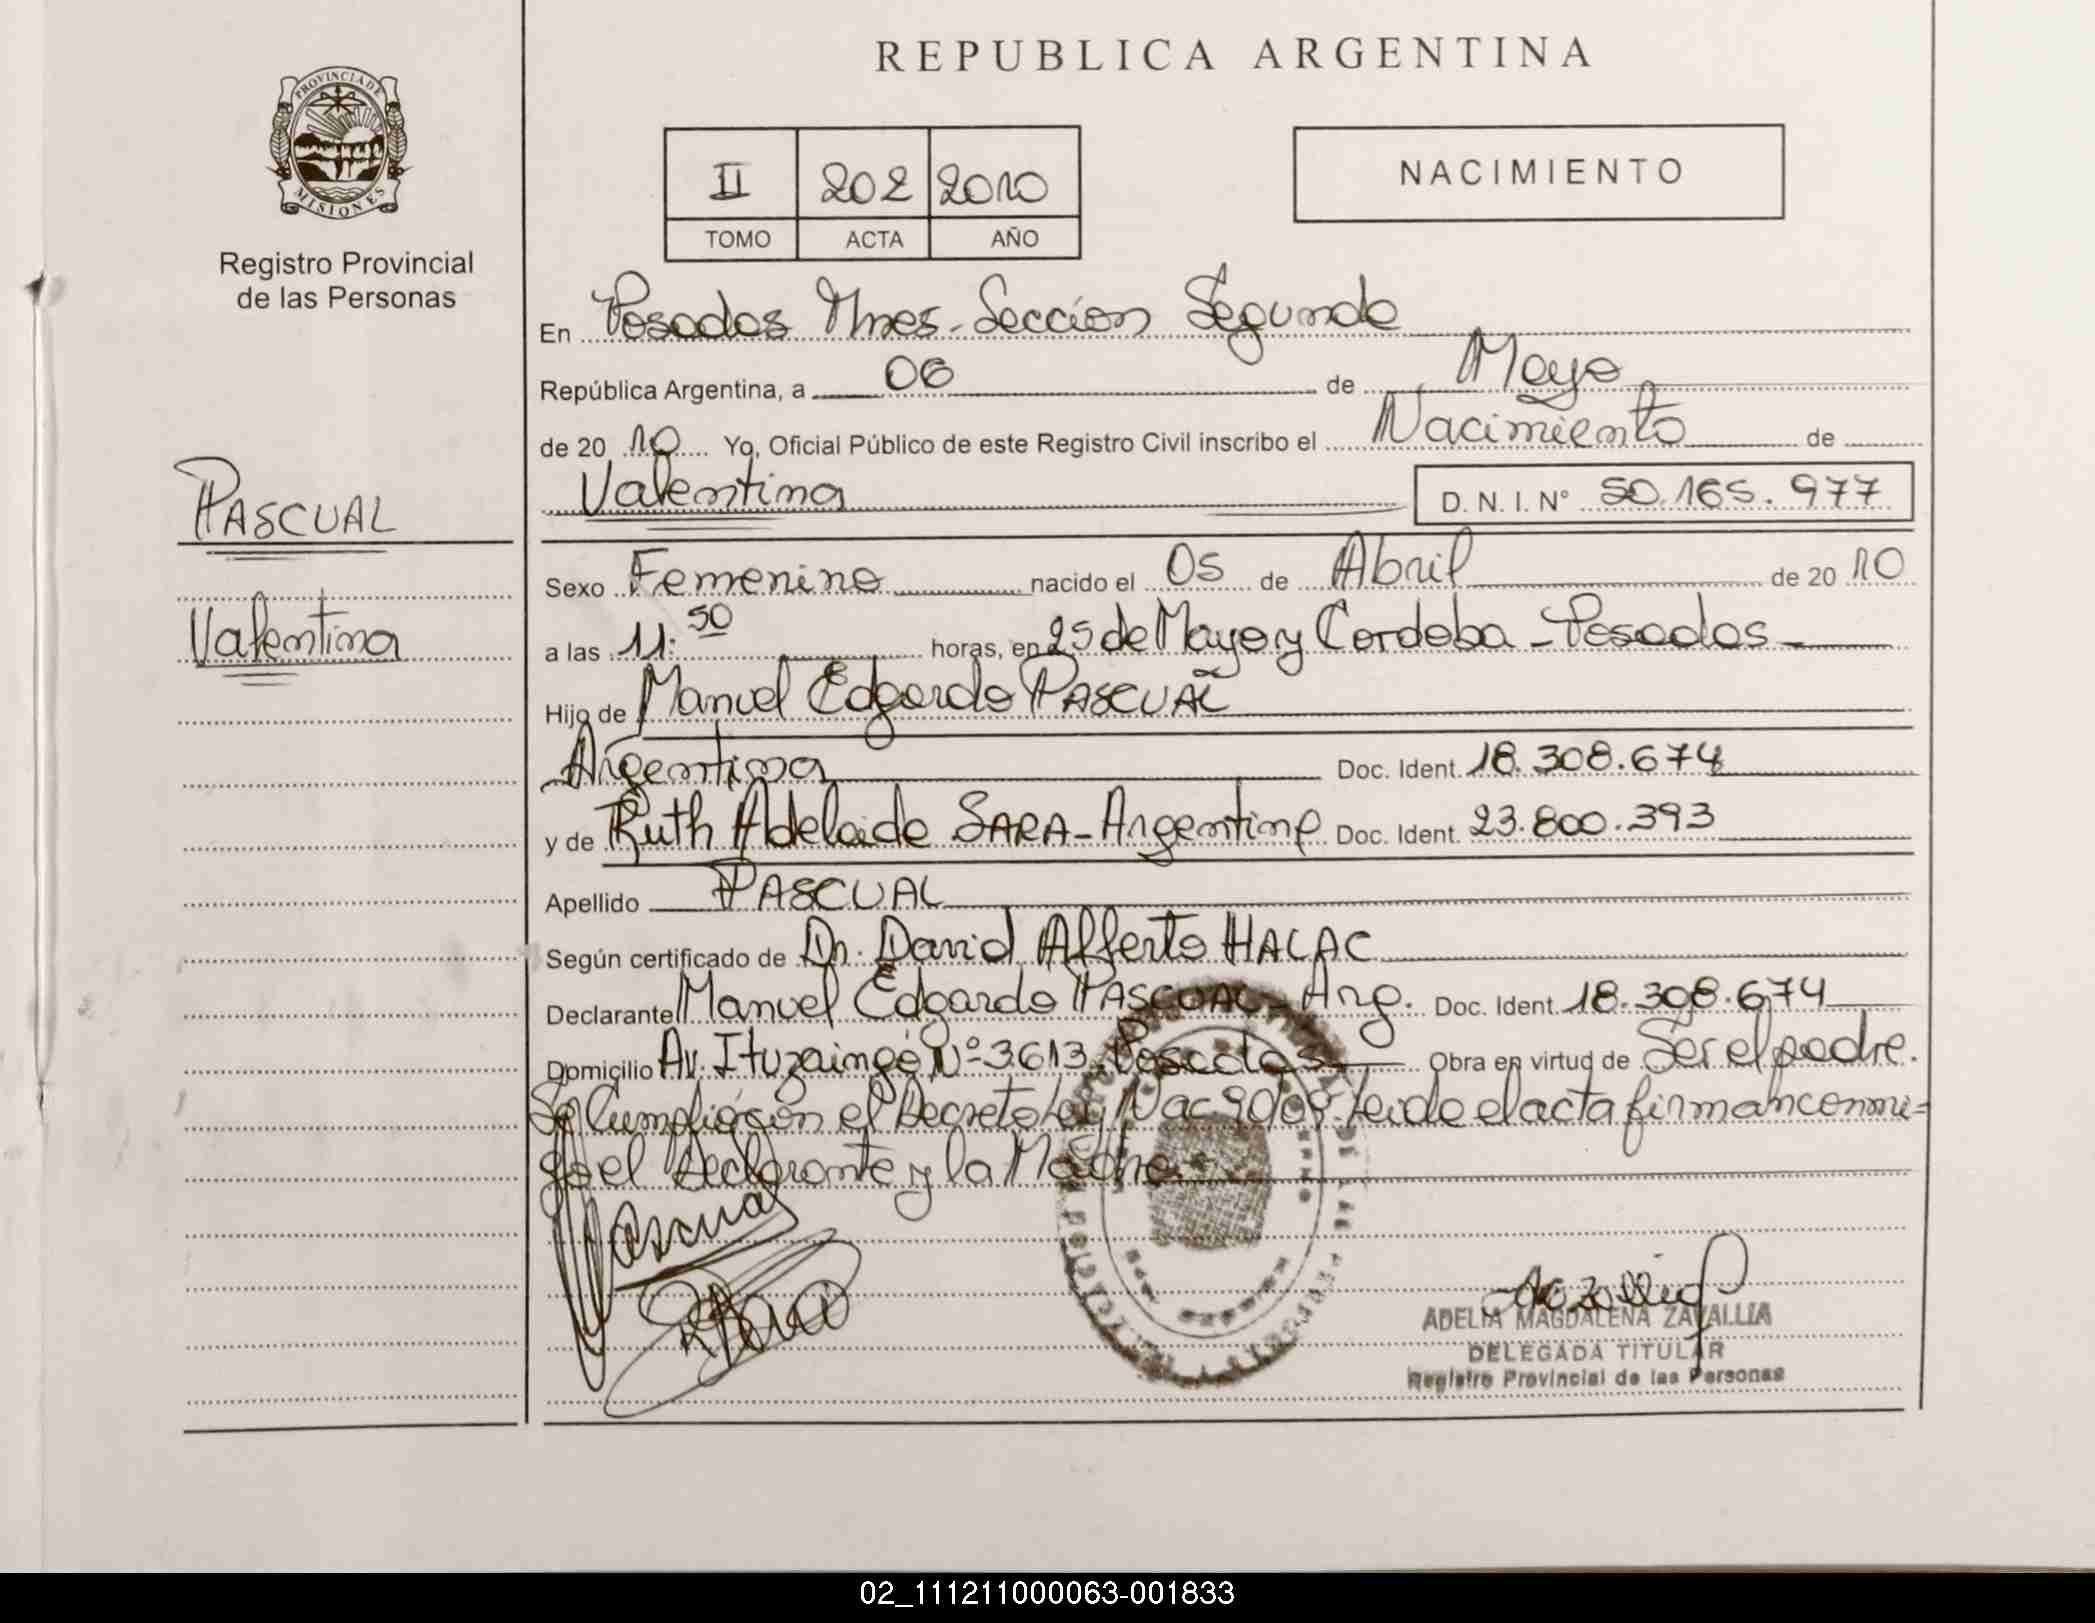 REPUBLICA ARGENTINA
PROVINCIA DE
MISIONES
Registro Provincial
de las Personas
II 202 2010
TOMO ACTA AÑO
NACIMIENTO
En Posadas Mnes. Sección Segunda
República Argentina, a 06 de Mayo
de 2010 Yo, Oficial Público de este Registro Civil inscribo el Nacimiento de
Valentina D. N. I. N° 50.165.977
PASCUAL
Valentina
Sexo Femenino nacido el 05 de Abril de 2010
a las 11:50 horas, en 25 de Mayo y Cordoba - Posadas -
Hijo de Manuel Edgardo PASCUAL
Argentina Doc. Ident. 18.308.674
y de Ruth Adelaida SARA - Argentina Doc. Ident. 23.800.393
Apellido PASCUAL
Según certificado de Dr. David Alberto HALAC
Declarante Manuel Edgardo PASCUAL - Arg. Doc. Ident. 18.308.674
Domicilio Av. Ituzaingó N° 3613. Posadas Obra en virtud de Ser el padre.
Se Cumplió con el Decreto Ley Nac 9009. Leido el acta firman conmi=
go el Declarante y la Madre.
Pascual
ADELIA MAGDALENA ZAVALLIA
DELEGADA TITULAR
Registro Provincial de las Personas
02_111211000063-001833